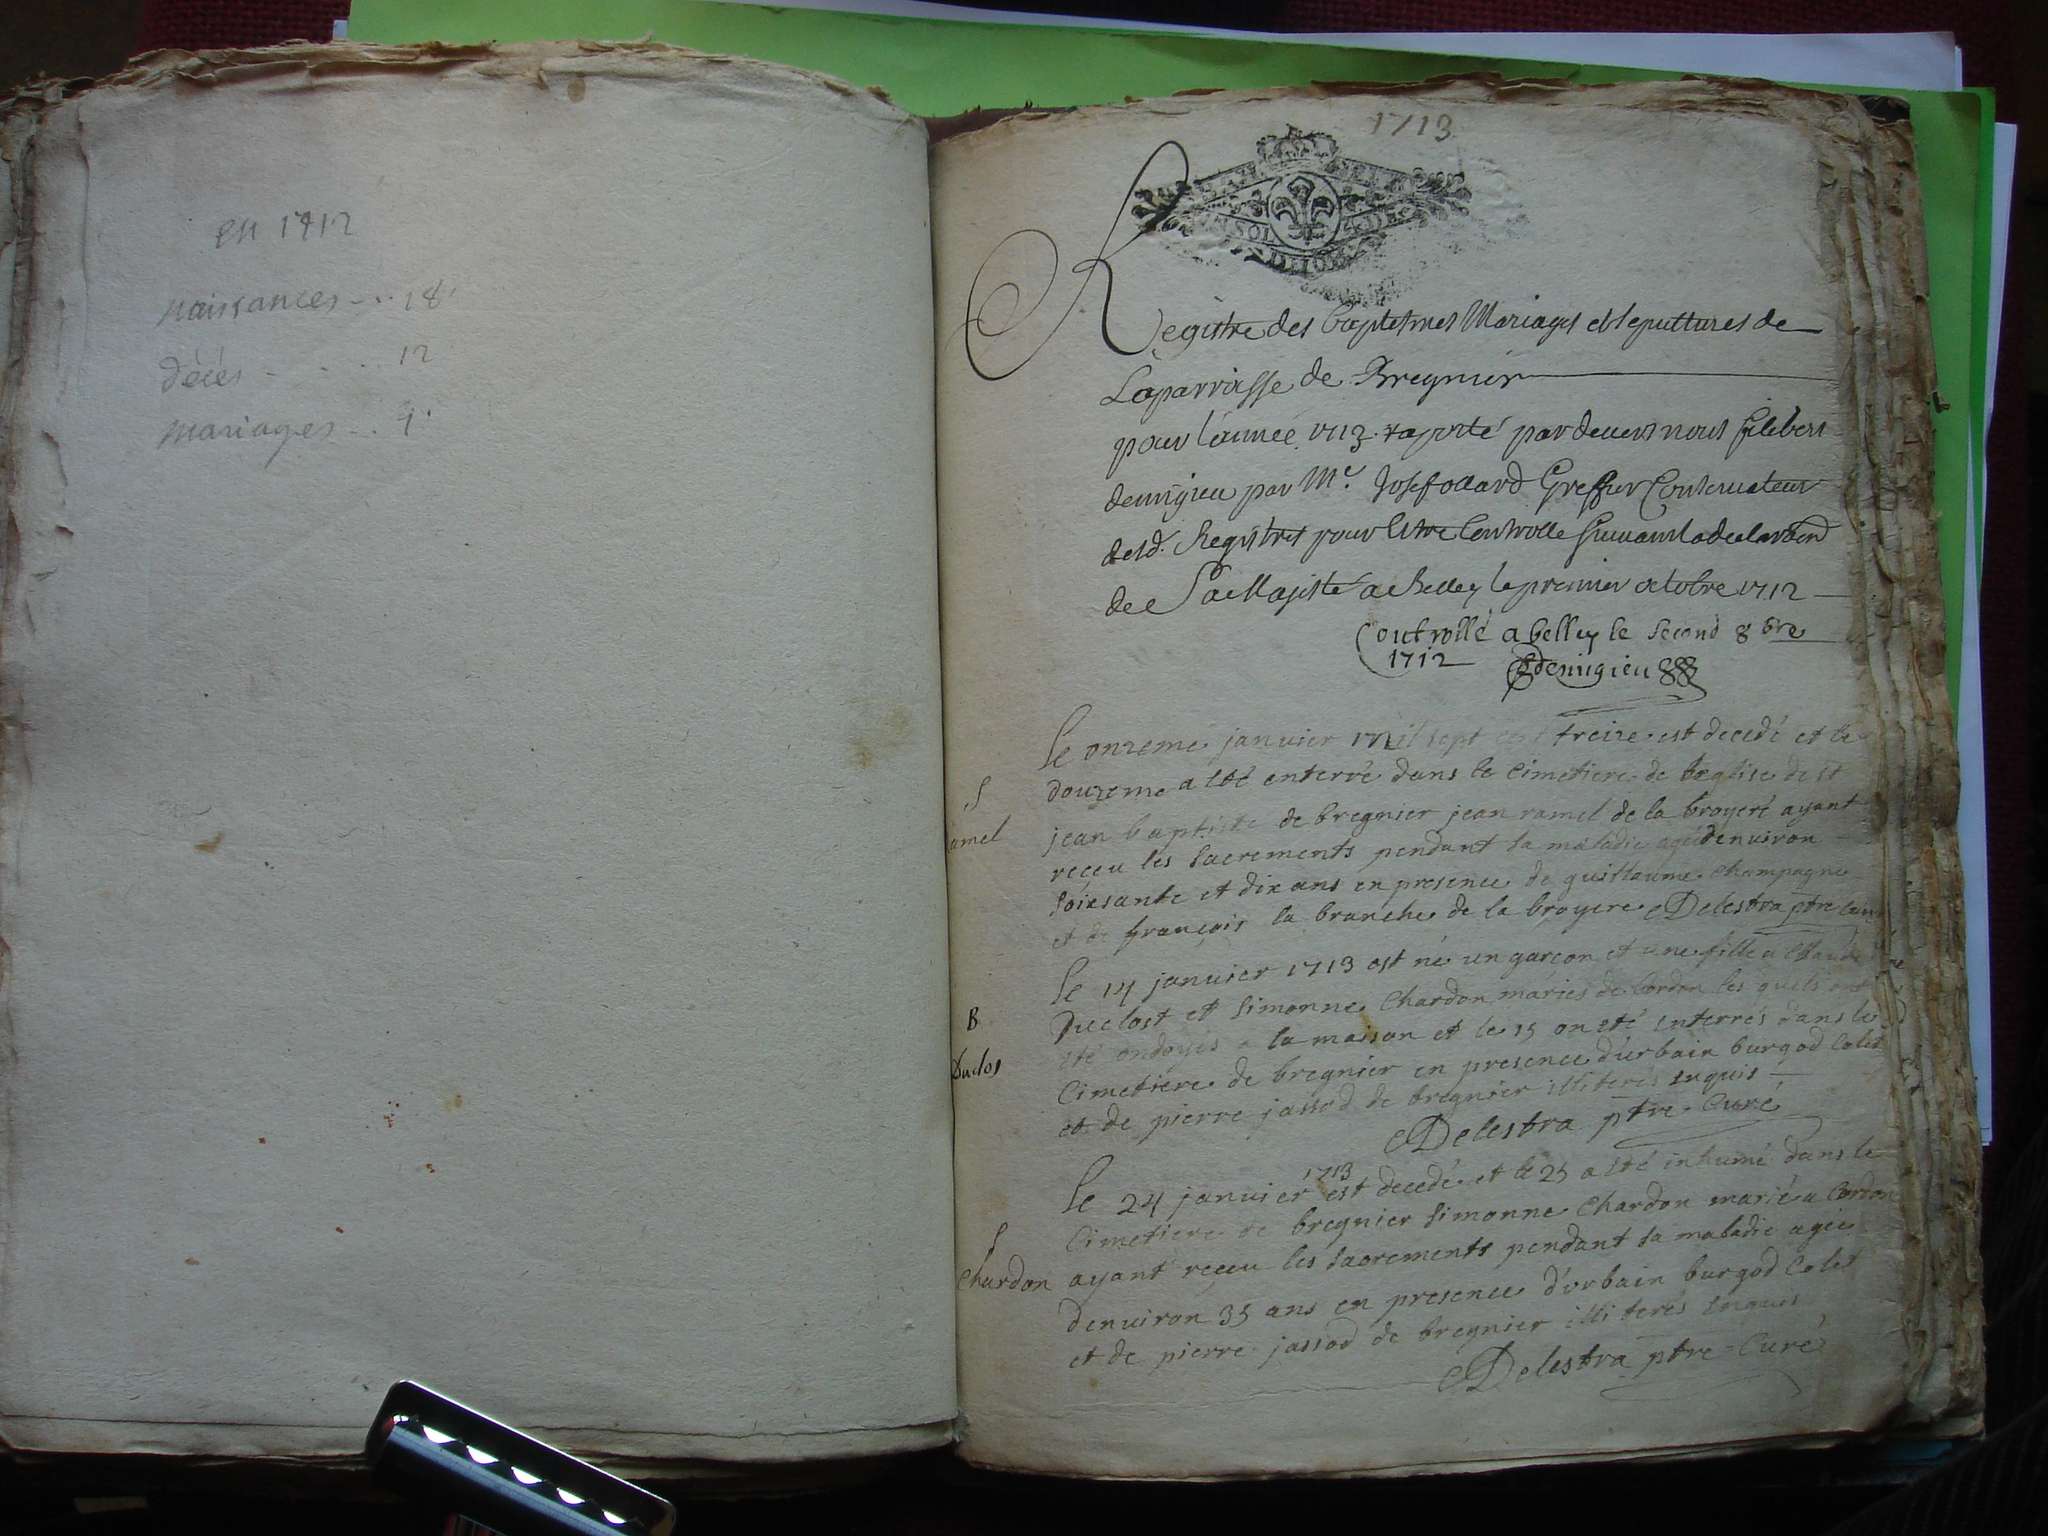 en 1712
naissances - . . 18
décés - . . . 12
mariages - . . 9
1713
Registre des baptesmes Mariages et sepultures de
La parroisse de Bregnier
pour l'année 1713. raporté par devers nous filibert
demigieu par Me. Josef ollard Greffier Conservateur
desd. Registres pour Estre Controlle suivant la declaration
de Sa Majesté a Belley le premier octobre 1712
Controllé a belley le second 8bre
1712 demigieu
Le onzeme janvier mil sept cent treize est decedé et le
S
douzeme a eté enterré dans le cimetiere de l'eglise de st
amel
jean baptiste de bregnier jean ramel de la broyere ayant
receu les sacrements pendant sa maladie agé denviron
soixsante et dix ans en presence de guillaume champagne
et de françois la branche de la broyere Delestra ptre curé
Le 14 janvier 1713 est né un garcon et une fille a Claude
B
Duclost et simonne Chardon maries de Cordon les quels ont
Duclos
eté ondoyés a la maison et le 15 on eté enterrés dans le
Cimetiere de bregnier en presence d'urbain burgod Colet
et de pierre jassod de bregnier illiterés enquis
Delestra ptre Curé
Le 24 janvier 1713 est decedé et le 25 a eté inhumé dans le
S
Cimetiere de bregnier simonne Chardon marié a Cordon
Chardon
ayant receu les sacrements pendant sa maladie agée
denviron 35 ans en presence d'orbain burgod Colet
et de pierre jassod de bregnier illiterés enquis
Delestra ptre Curé